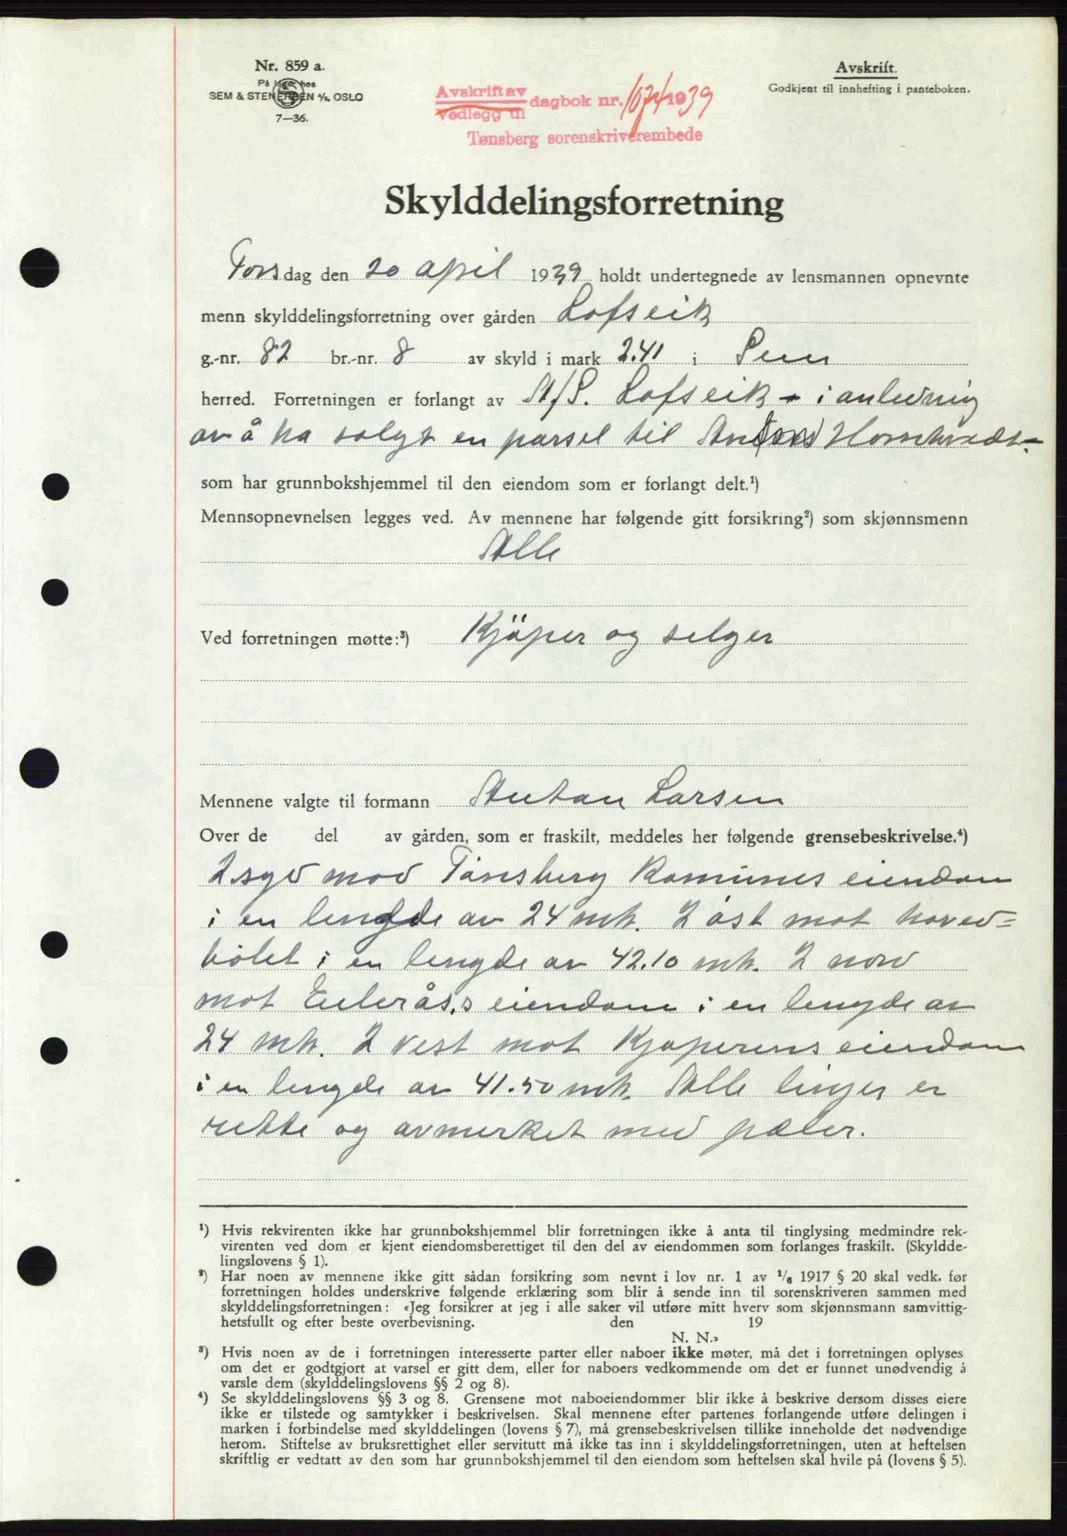 Nr. 859 a.
På lager hos
SEM & STENERSEN A/S, OSLO
7—36.
Avskrift av
vedlegg til
dagbok nr. 1939
Tønsberg sorenskriverembede
Avskrift.
Godkjent til innhefting i panteboken.
Skylddelingsforretning
Torsdag den 20 april 1939 holdt undertegnede av lensmannen opnevnte
menn skylddelingsforretning over gården Lofseik
g.-nr. 82 br.-nr. 8 av skyld i mark 2.41 i Sem
herred. Forretningen er forlangt av A/S. Lofseik - i anledning
av å ha solgt en parsel til
som har grunnbokshjemmel til den eiendom som er forlangt delt.¹)
Mennsopnevnelsen legges ved. Av mennene har følgende gitt forsikring²) som skjønnsmenn
Alle
Ved forretningen møtte:³) Kjöper og selger
Mennene valgte til formann Larsen
Over de del av gården, som er fraskilt, meddeles her følgende grensebeskrivelse.⁴)
syd mod Tönsberg Komunes eiendom
i en lengde av 24 mtr. I öst mot hoved=
bölet i en lengde av 42.10 mtr. I nord
mot eiendom i en lengde av
24 mtr. I vest mot Kjøperens eiendom
i en lengde av 41.50 mtr. Alle linjer er
rette og avmerket med pæler.
¹) Hvis rekvirenten ikke har grunnbokshjemmel blir forretningen ikke å anta til tinglysing medmindre rek-
virenten ved dom er kjent eiendomsberettiget til den del av eiendommen som forlanges fraskilt. (Skyldde-
lingslovens § 1).
²) Har noen av mennene ikke gitt sådan forsikring som nevnt i lov nr. 1 av 1/6 1917 § 20 skal vedk. før
forretningen holdes underskrive følgende erklæring som blir å sende inn til sorenskriveren sammen med
skylddelingsforretningen: «Jeg forsikrer at jeg i alle saker vil utføre mitt hverv som skjønnsmann samvittig-
hetsfullt og efter beste overbevisning. den 19
N. N.»
³) Hvis noen av de i forretningen interesserte parter eller naboer ikke møter, må det i forretningen oplyses
om det er godtgjort at varsel er gitt dem, eller for naboers vedkommende om det er funnet unødvendig å
varsle dem (skylddelingslovens §§ 2 og 8).
⁴) Se skylddelingslovens §§ 3 og 8. Grensene mot naboeiendommer blir ikke å beskrive dersom disses eiere
ikke er tilstede og samtykker i beskrivelsen. Skal mennene efter partenes forlangende utføre delingen i
marken i forbindelse med skylddelingen (lovens § 7), må grensebeskrivelsen tillike inneholde det nødvendige
herom. Stiftelse av bruksrettighet eller servitutt må ikke tas inn i skylddelingsforretningen, uten at heftelsen
skriftlig er vedtatt av den som har grunnbokshjemmel til den eiendom som heftelsen skal hvile på (lovens § 5).